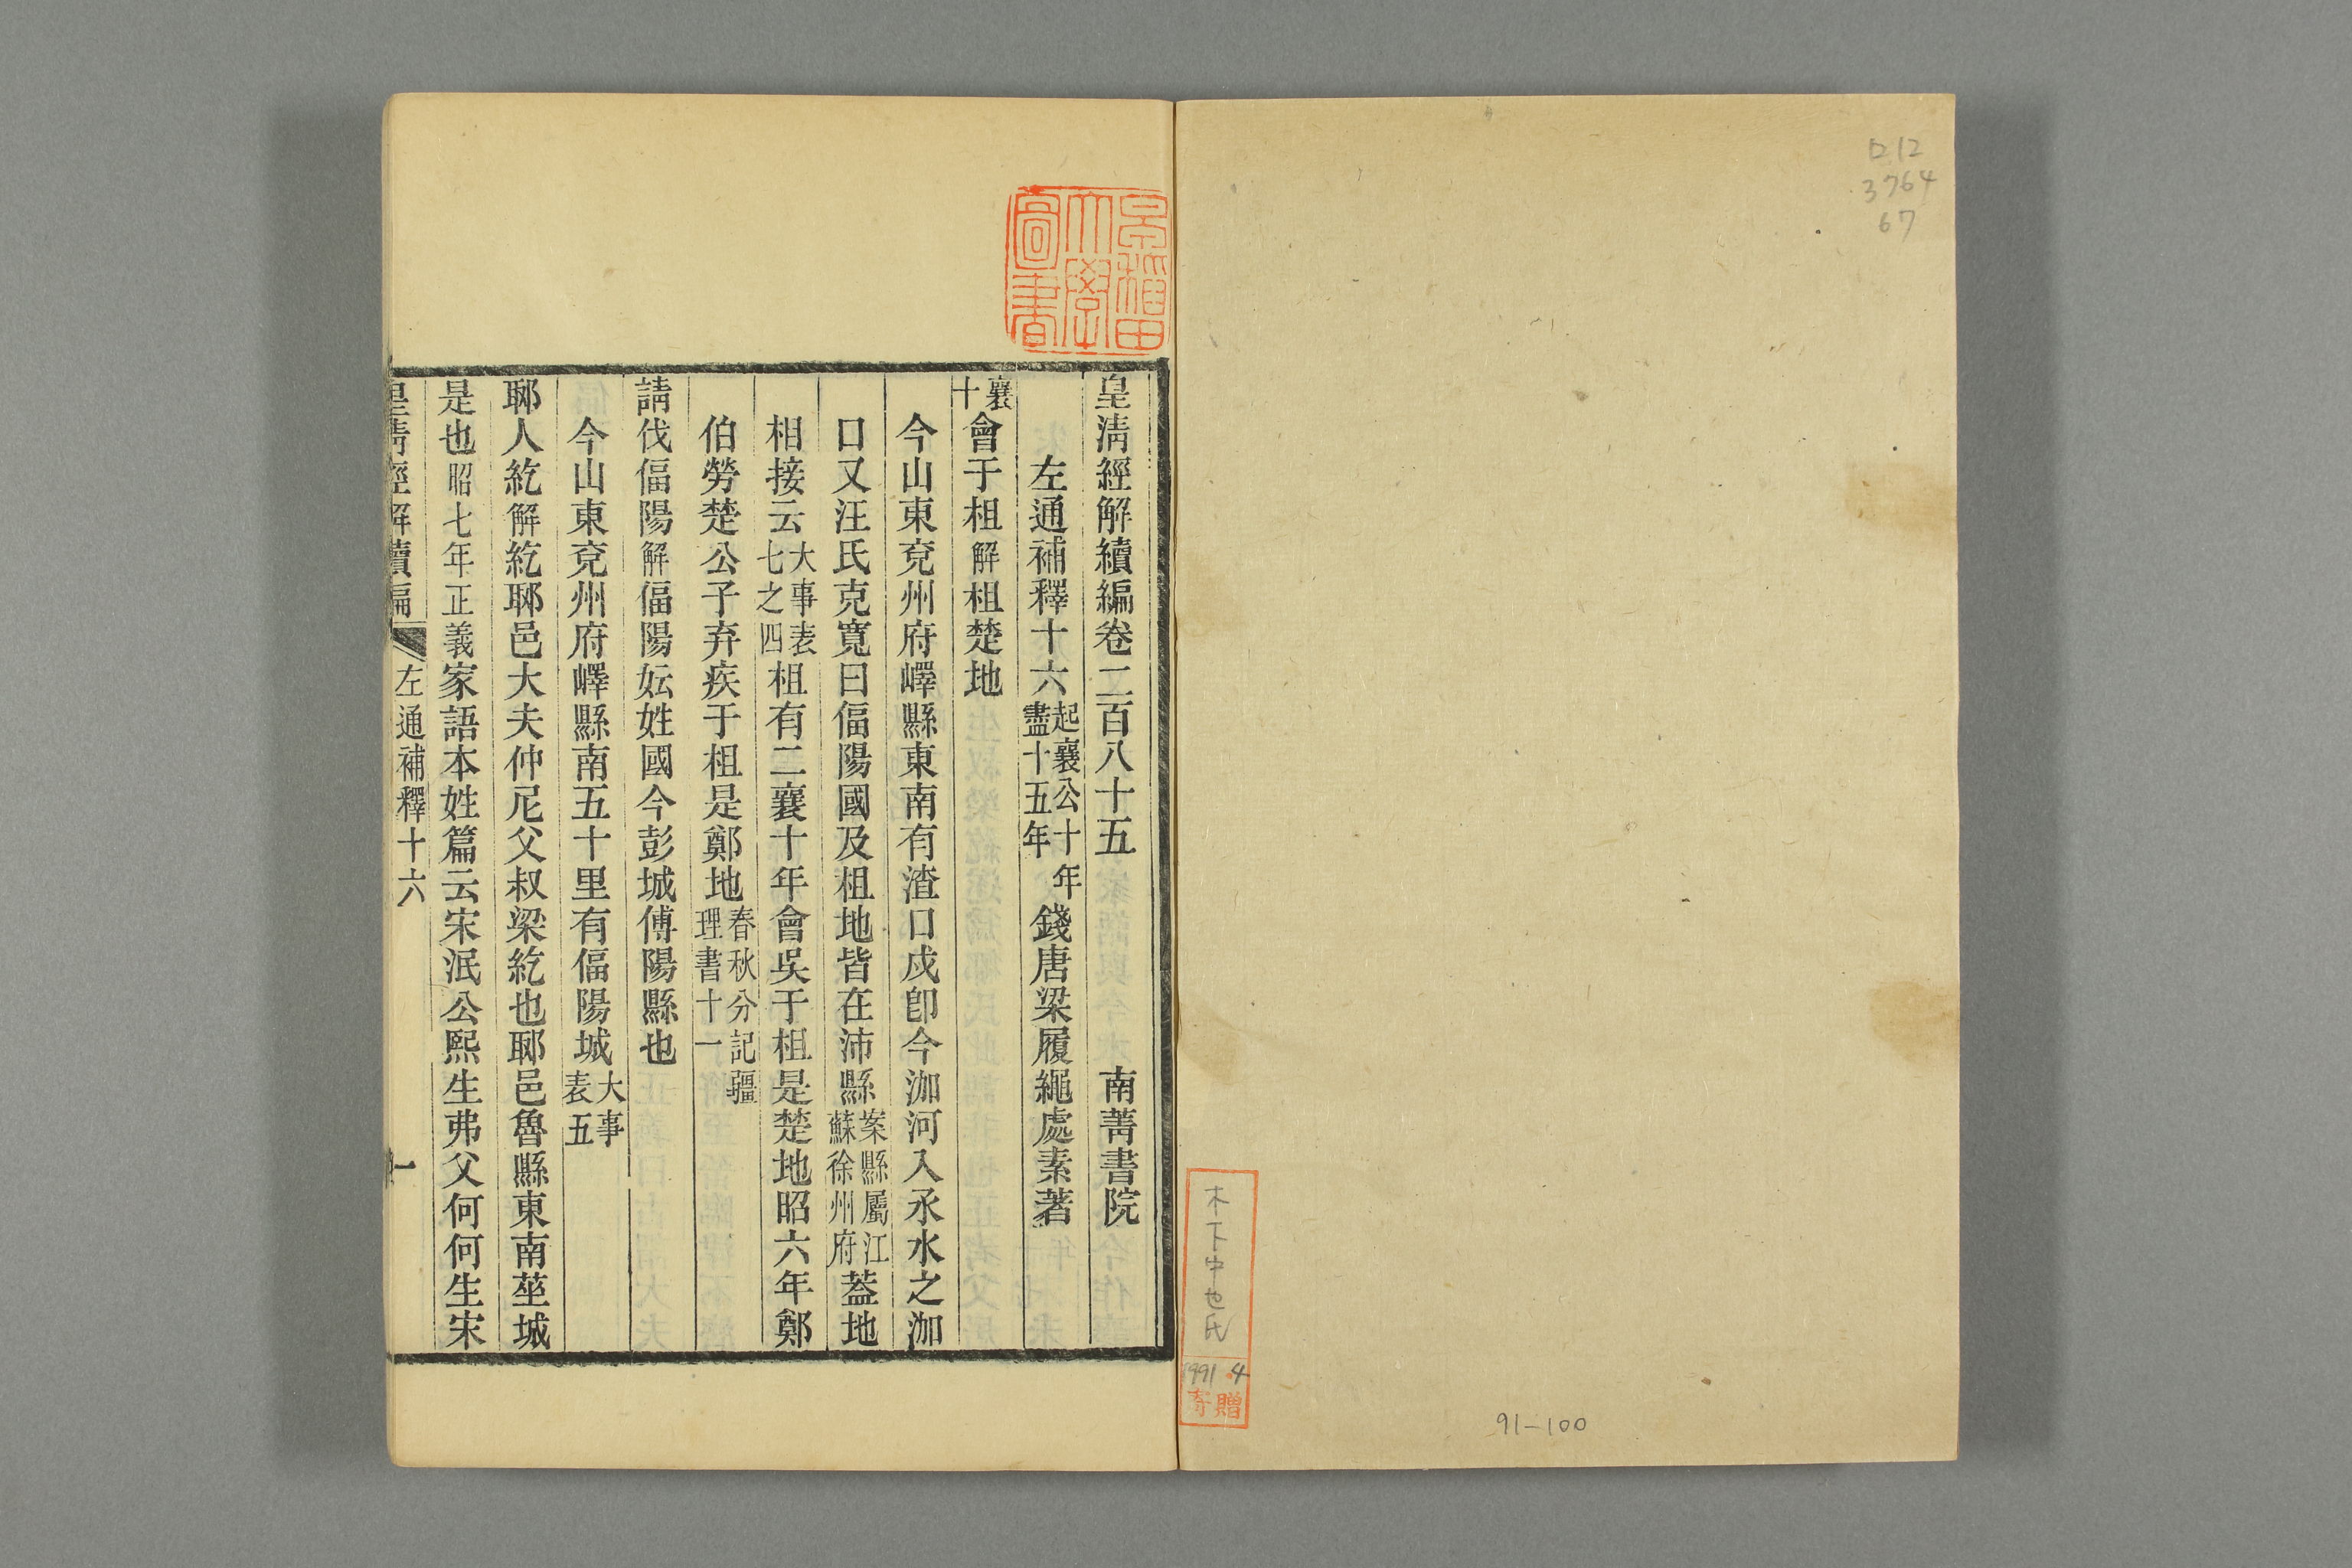 ロ12
3764
67
木下中也氏
1991.4
寄贈
91-100
早稲田大學圖書
皇淸經解續編卷二百八十五 南菁書院
左通補釋十六起襄公十年盡十五年 錢唐梁履繩處素著
襄十會于柤解柤楚地
今山東兗州府嶧縣東南有渣口戍卽今泇河入氶水之泇
口又汪氏克寬曰偪陽國及柤地皆在沛縣案縣屬江蘇徐州府葢地
相接云大事表七之四柤有二襄十年會吳于柤是楚地昭六年鄭
伯勞楚公子弃疾于柤是鄭地春秋分記疆理書十一
請伐偪陽解偪陽妘姓國今彭城傅陽縣也
今山東兗州府嶧縣南五十里有偪陽城大事表五
郰人紇解紇郰邑大夫仲尼父叔梁紇也郰邑魯縣東南莝城
是也昭七年正義家語本姓篇云宋泯公熙生弗父何何生宋
皇淸經解續編 左通補釋十六 一